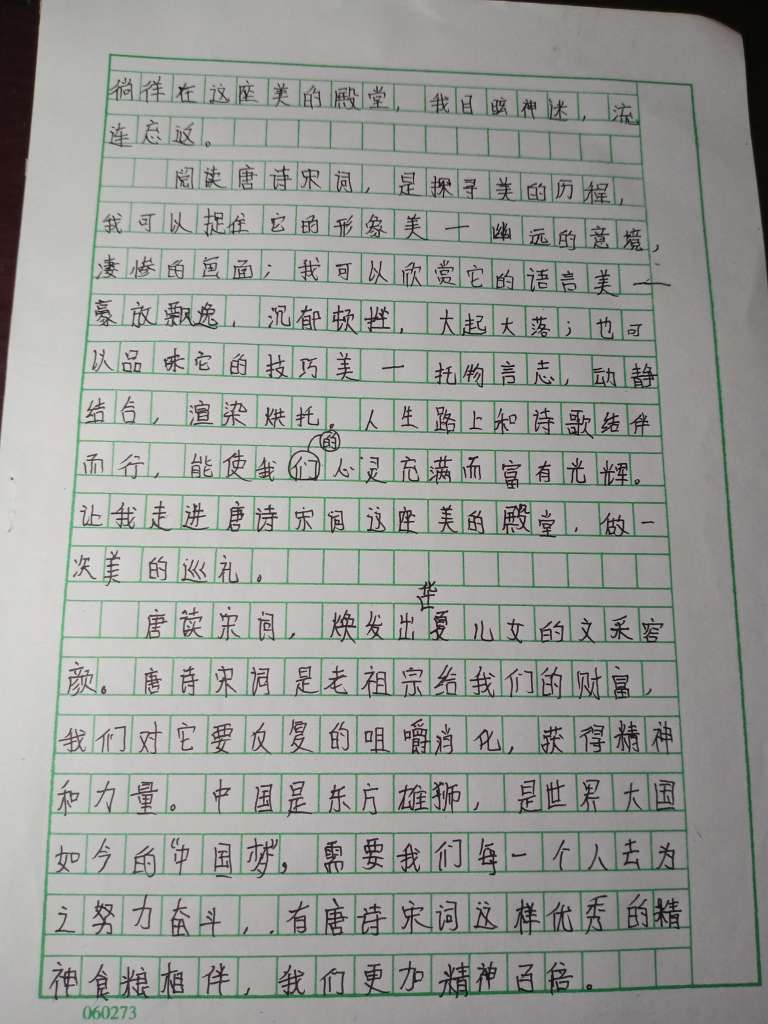 徜徉在这座美的殿堂，我目眩神迷，流
连忘返。
阅读唐诗宋词，是探寻美的历程，
我可以捉住它的形象美一幽远的意境，
凄惨的画面；我可以欣赏它的语言美一
豪放飘逸，沉郁顿挫，大起大落；也可
以品味它的技巧美一托物言志，动静
结合，渲染烘托。人生路上和诗歌结伴
的
而行，能使我们心灵充满而富有光辉。
让我走进唐诗宋词这座美的殿堂，做一
次美的巡礼。
华
唐读宋词，焕发出夏儿女的文采容
颜。唐诗宋词是老祖宗给我们的财富，
我们对它要反复的咀嚼消化，获得精神
和力量。中国是东方雄狮，是世界大国
如今的“中国梦”，需要我们每一个人去为
之努力奋斗，.有唐诗宋词这样优秀的精
神食粮相伴，我们更加精神百倍。
060273